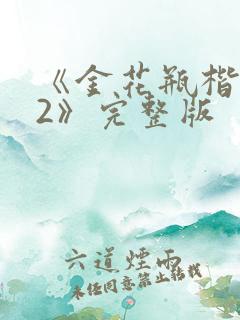 《金花瓶楷
2》完整版
六道煙雨
未经同意禁止转载